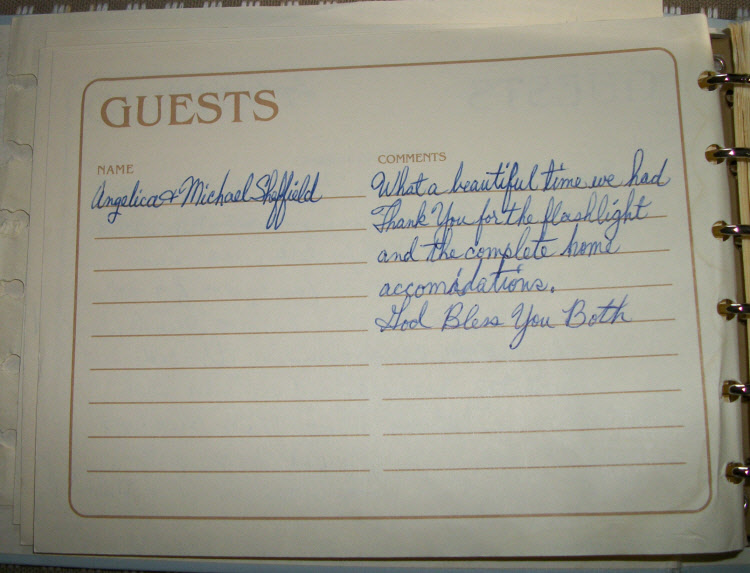 GUESTS
NAME
COMMENTS
Angelica & Michael Sheffield
What a beautiful time we had
Thank You for the flashlight
and the complete home
accomadations.
God Bless You Both